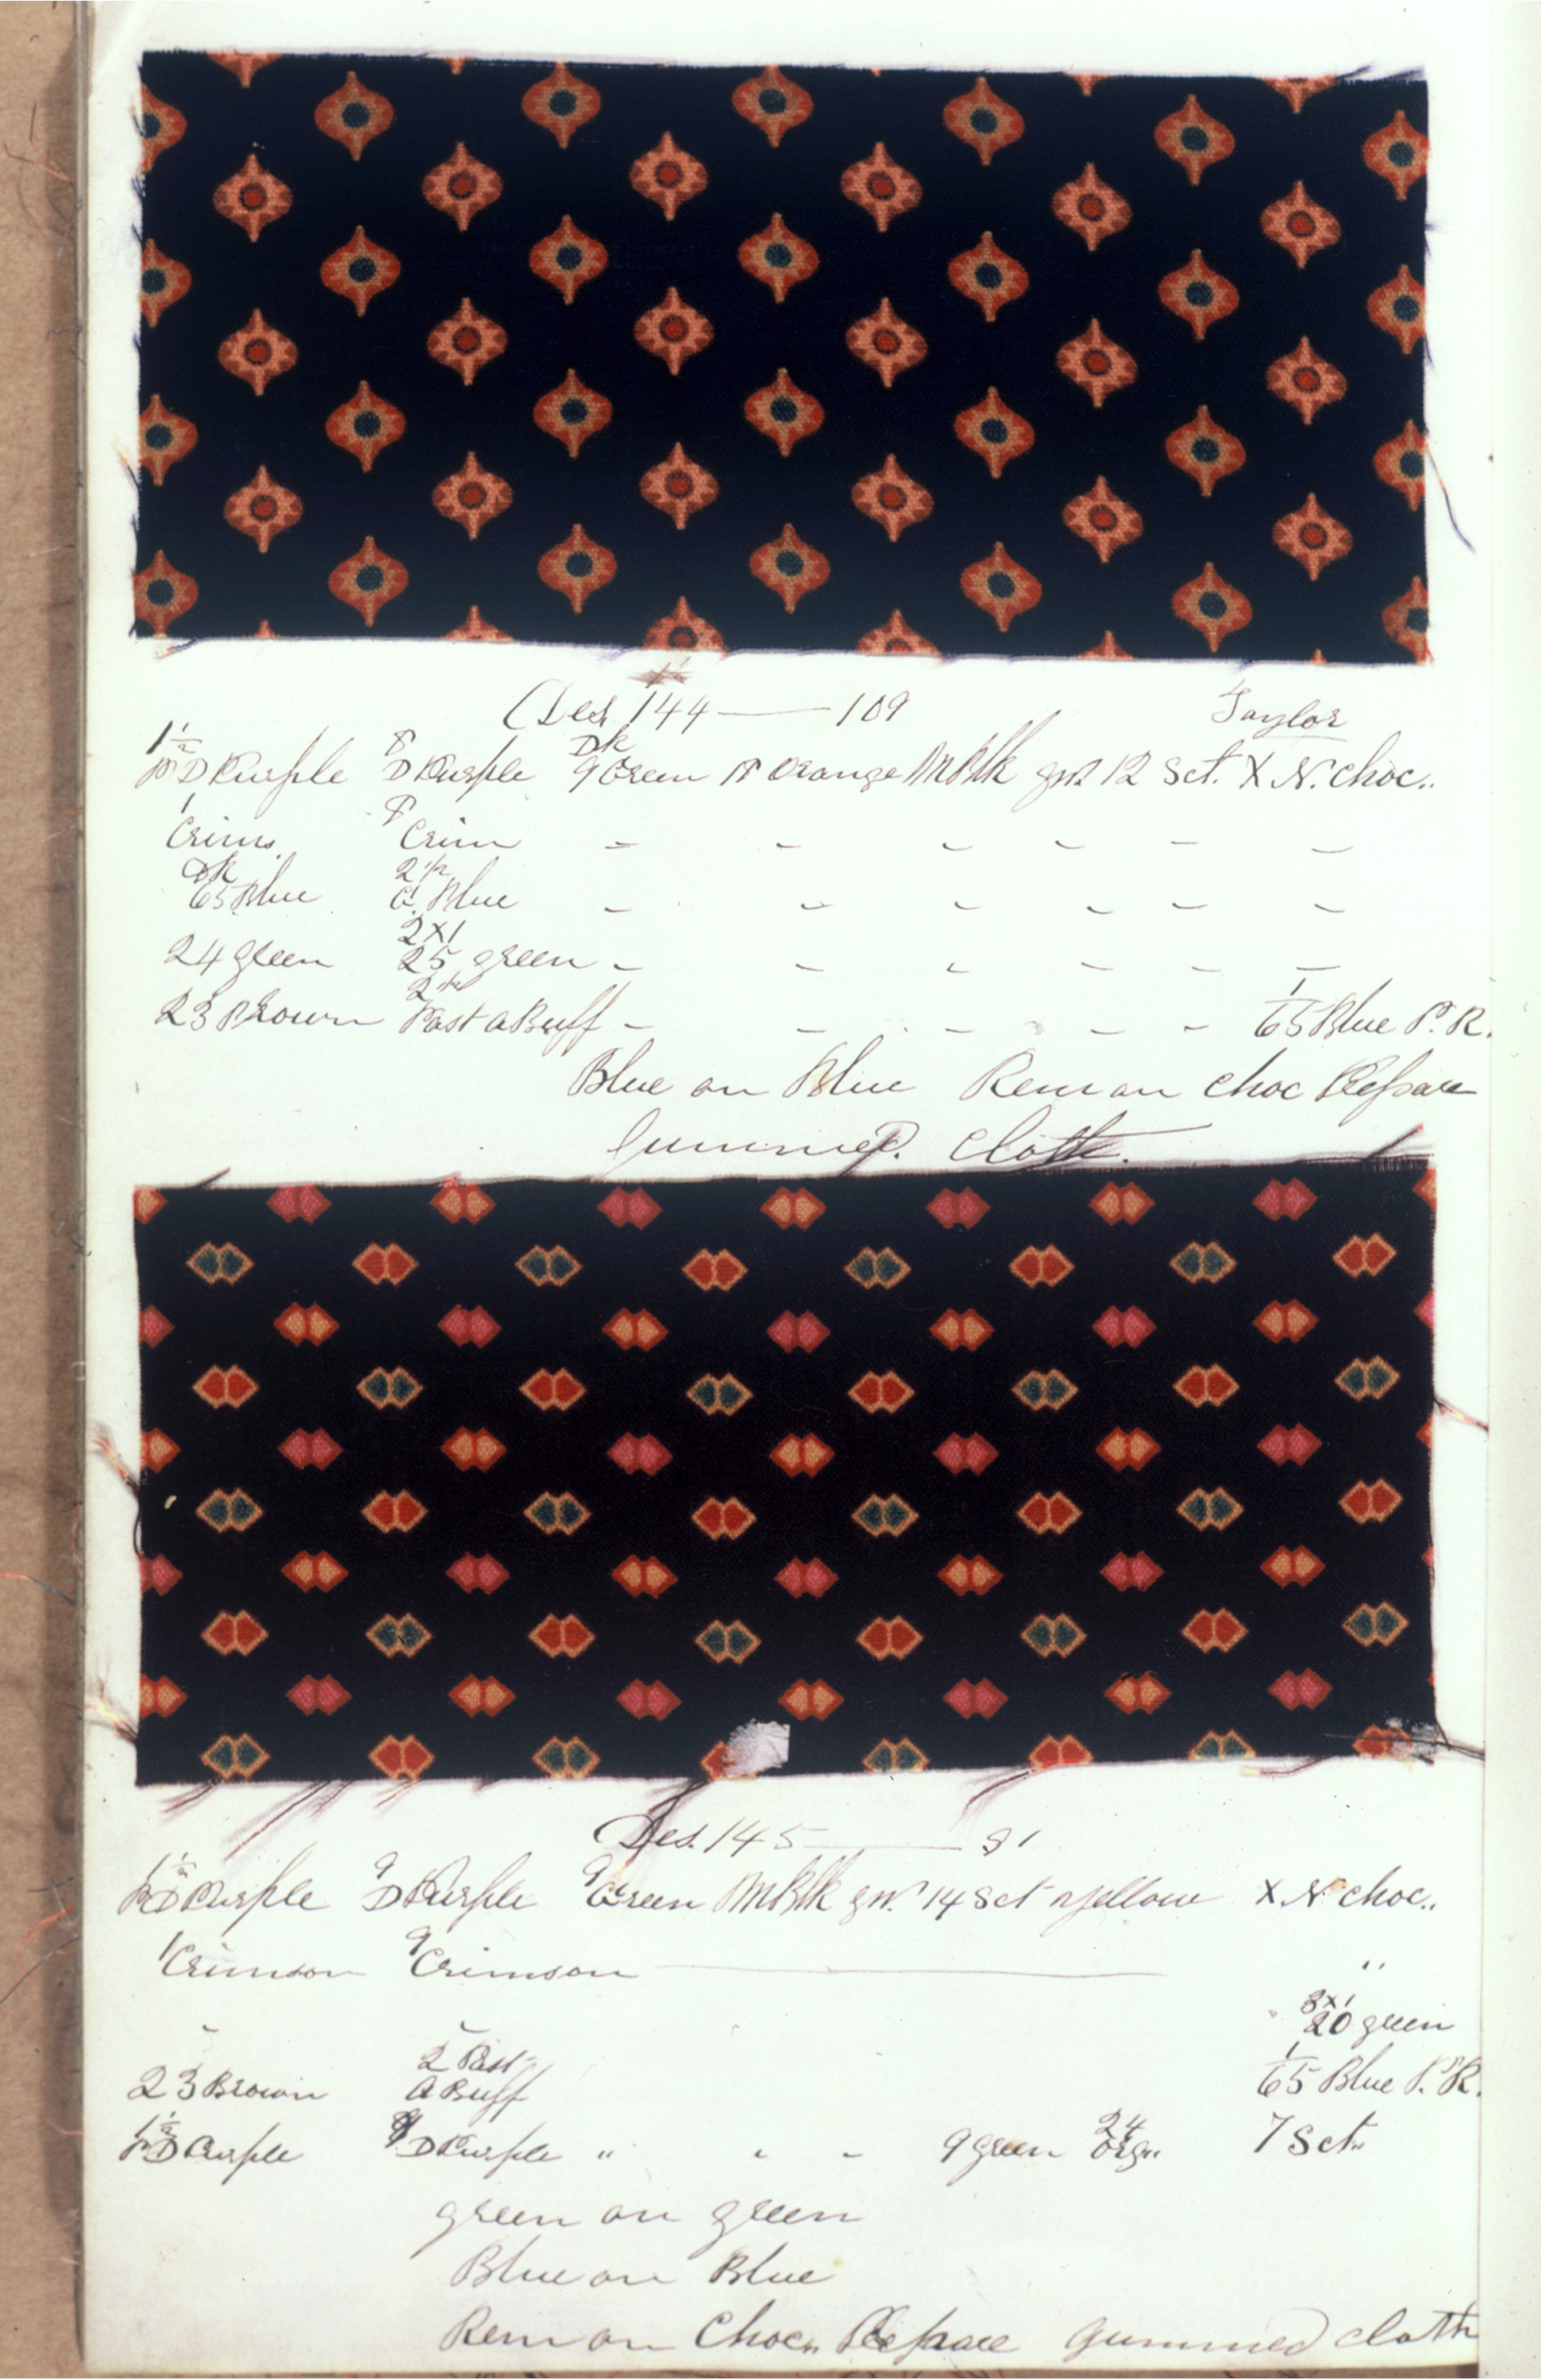 Des. 144 — 109 Taylor
1½ D Purple 8 D Purple Dk 9 Green Orange M Blk 12 Sct. X N. Choc..
1 Crims. 8 Crim - - - - - -
Dk 65 Blue 2½ Blue - - - - - -
24 green 2x1 25 green - - - - - -
23 Brown Past a Buff - - - - - 1 65 Blue P. R.
Blue on Blue Rem on choc Prepare
Gummed. Cloth.
Des. 145 — 81
1½ D Purple 9 D Purple 9 Green M Blk 14 Sct yellow X N. choc..
1 Crimson 9 Crimson — "
3x1 20 green
23 Brown 2 Past a Buff 1 65 Blue P. R.
1½ D Purple 9 D Purple " - - 9 green 24 Org.. 7 Sct..
green on green
Blue on Blue
Rem on Choc.. Prepare gummed cloth